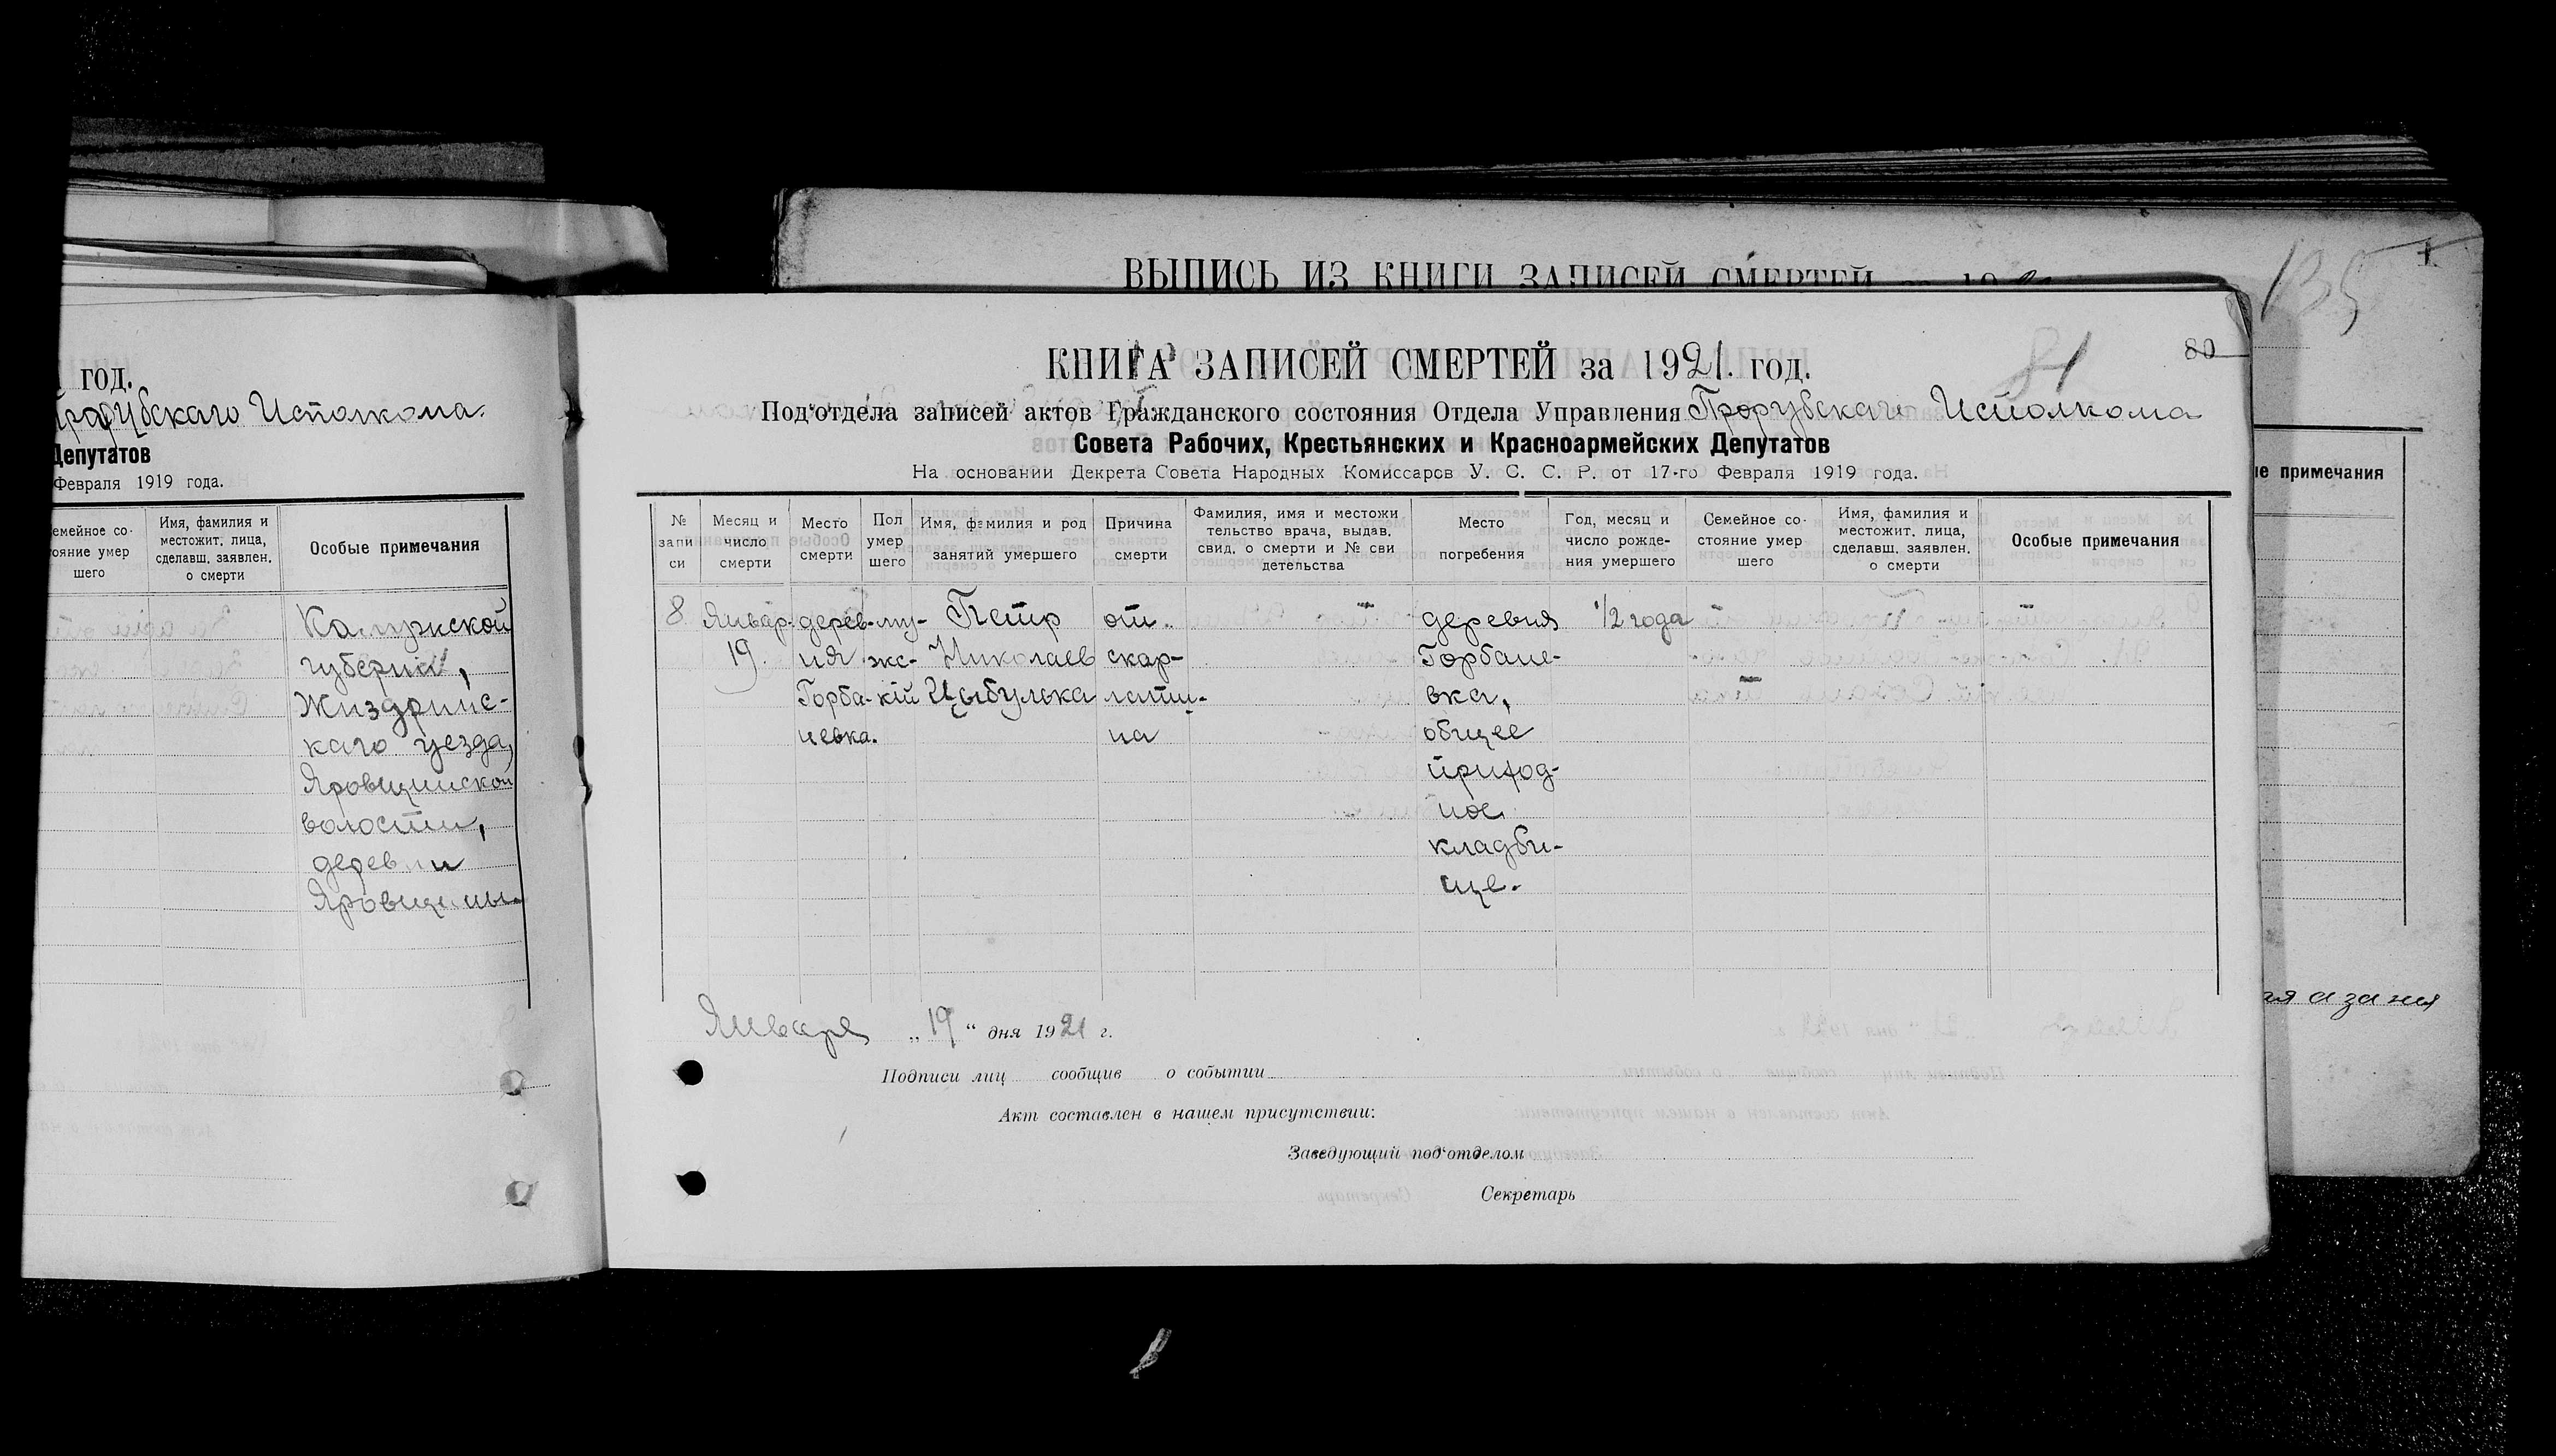 ВЫПИСЬ ИЗ КНИГИ ЗАПИСЕЙ СМЕРТЕЙ
135
год.
Исполкома.
Депутатов
Февраля 1919 года.
емейное со-
ояние умер
шего
Имя, фамилия и
местожит. лица,
сделавш. заявлен.
о смерти
Особые примечания
губернии,
Жиздринс-
каго уезда,
Яровщинской
волости,
деревни
Яровщины.
81
80
КНИГА ЗАПИСЕЙ СМЕРТЕЙ за 1921. год.
Под'отдела записей актов Гражданского состояния Отдела Управления Прорубскаго Исполкома
Совета Рабочих, Крестьянских и Красноармейских Депутатов
На основании Декрета Совета Народных Комиссаров У. С. С. Р. от 17-го Февраля 1919 года.
№
запи
си
Месяц и
число
смерти
Место
смерти
Пол
умер
шего
Имя, фамилия и род
занятий умершего
Причина
смерти
Фамилия, имя и местожи
тельство врача, выдав.
свид. о смерти и № сви
детельства
Место
погребения
Год, месяц и
число рожде-
ния умершего
Семейное со-
стояние умер
шего
Имя, фамилия и
местожит. лица,
сделавш. заявлен.
о смерти
Особые примечания
8
Январ.
19.
дерев-
ня
Горба-
невка.
му-
жс-
кій
Петр
Николаев
Цыбулька
от
скар-
лати-
на
деревня
Горбане-
вка,
общее
приход-
ное
кладби-
ще.
1/2 года
Января „19“ дня 1921 г.
Подписи лиц сообщив о событии
Акт составлен в нашем присутствии:
Заведующий под'отделом
Секретарь
ие примечания